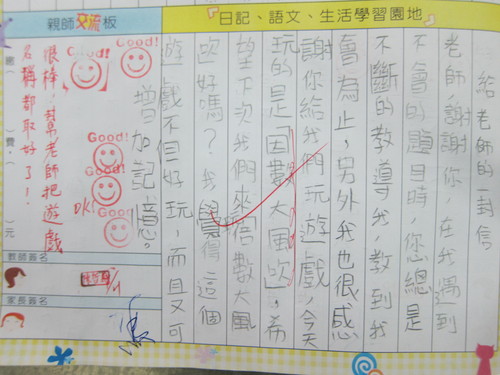 日記、語文、生活學習園地
給老師的一封信
老師,謝謝你,在我遇到
不會的題目時,您總是
不斷的教導我,教到我
會為止,另外我也很感
謝你給我們玩遊戲,今天
玩的是「因數大風吹」,希
望下次我們來倍數大風
吹好嗎?我覺得這個
遊戲不但好玩,而且又可
增加記憶。
親師交流板
Good!
Good!
Good!
Good!
Good!
OK!
很棒,幫老師把遊戲
名稱都取好了!
費
元
教師簽名
家長簽名